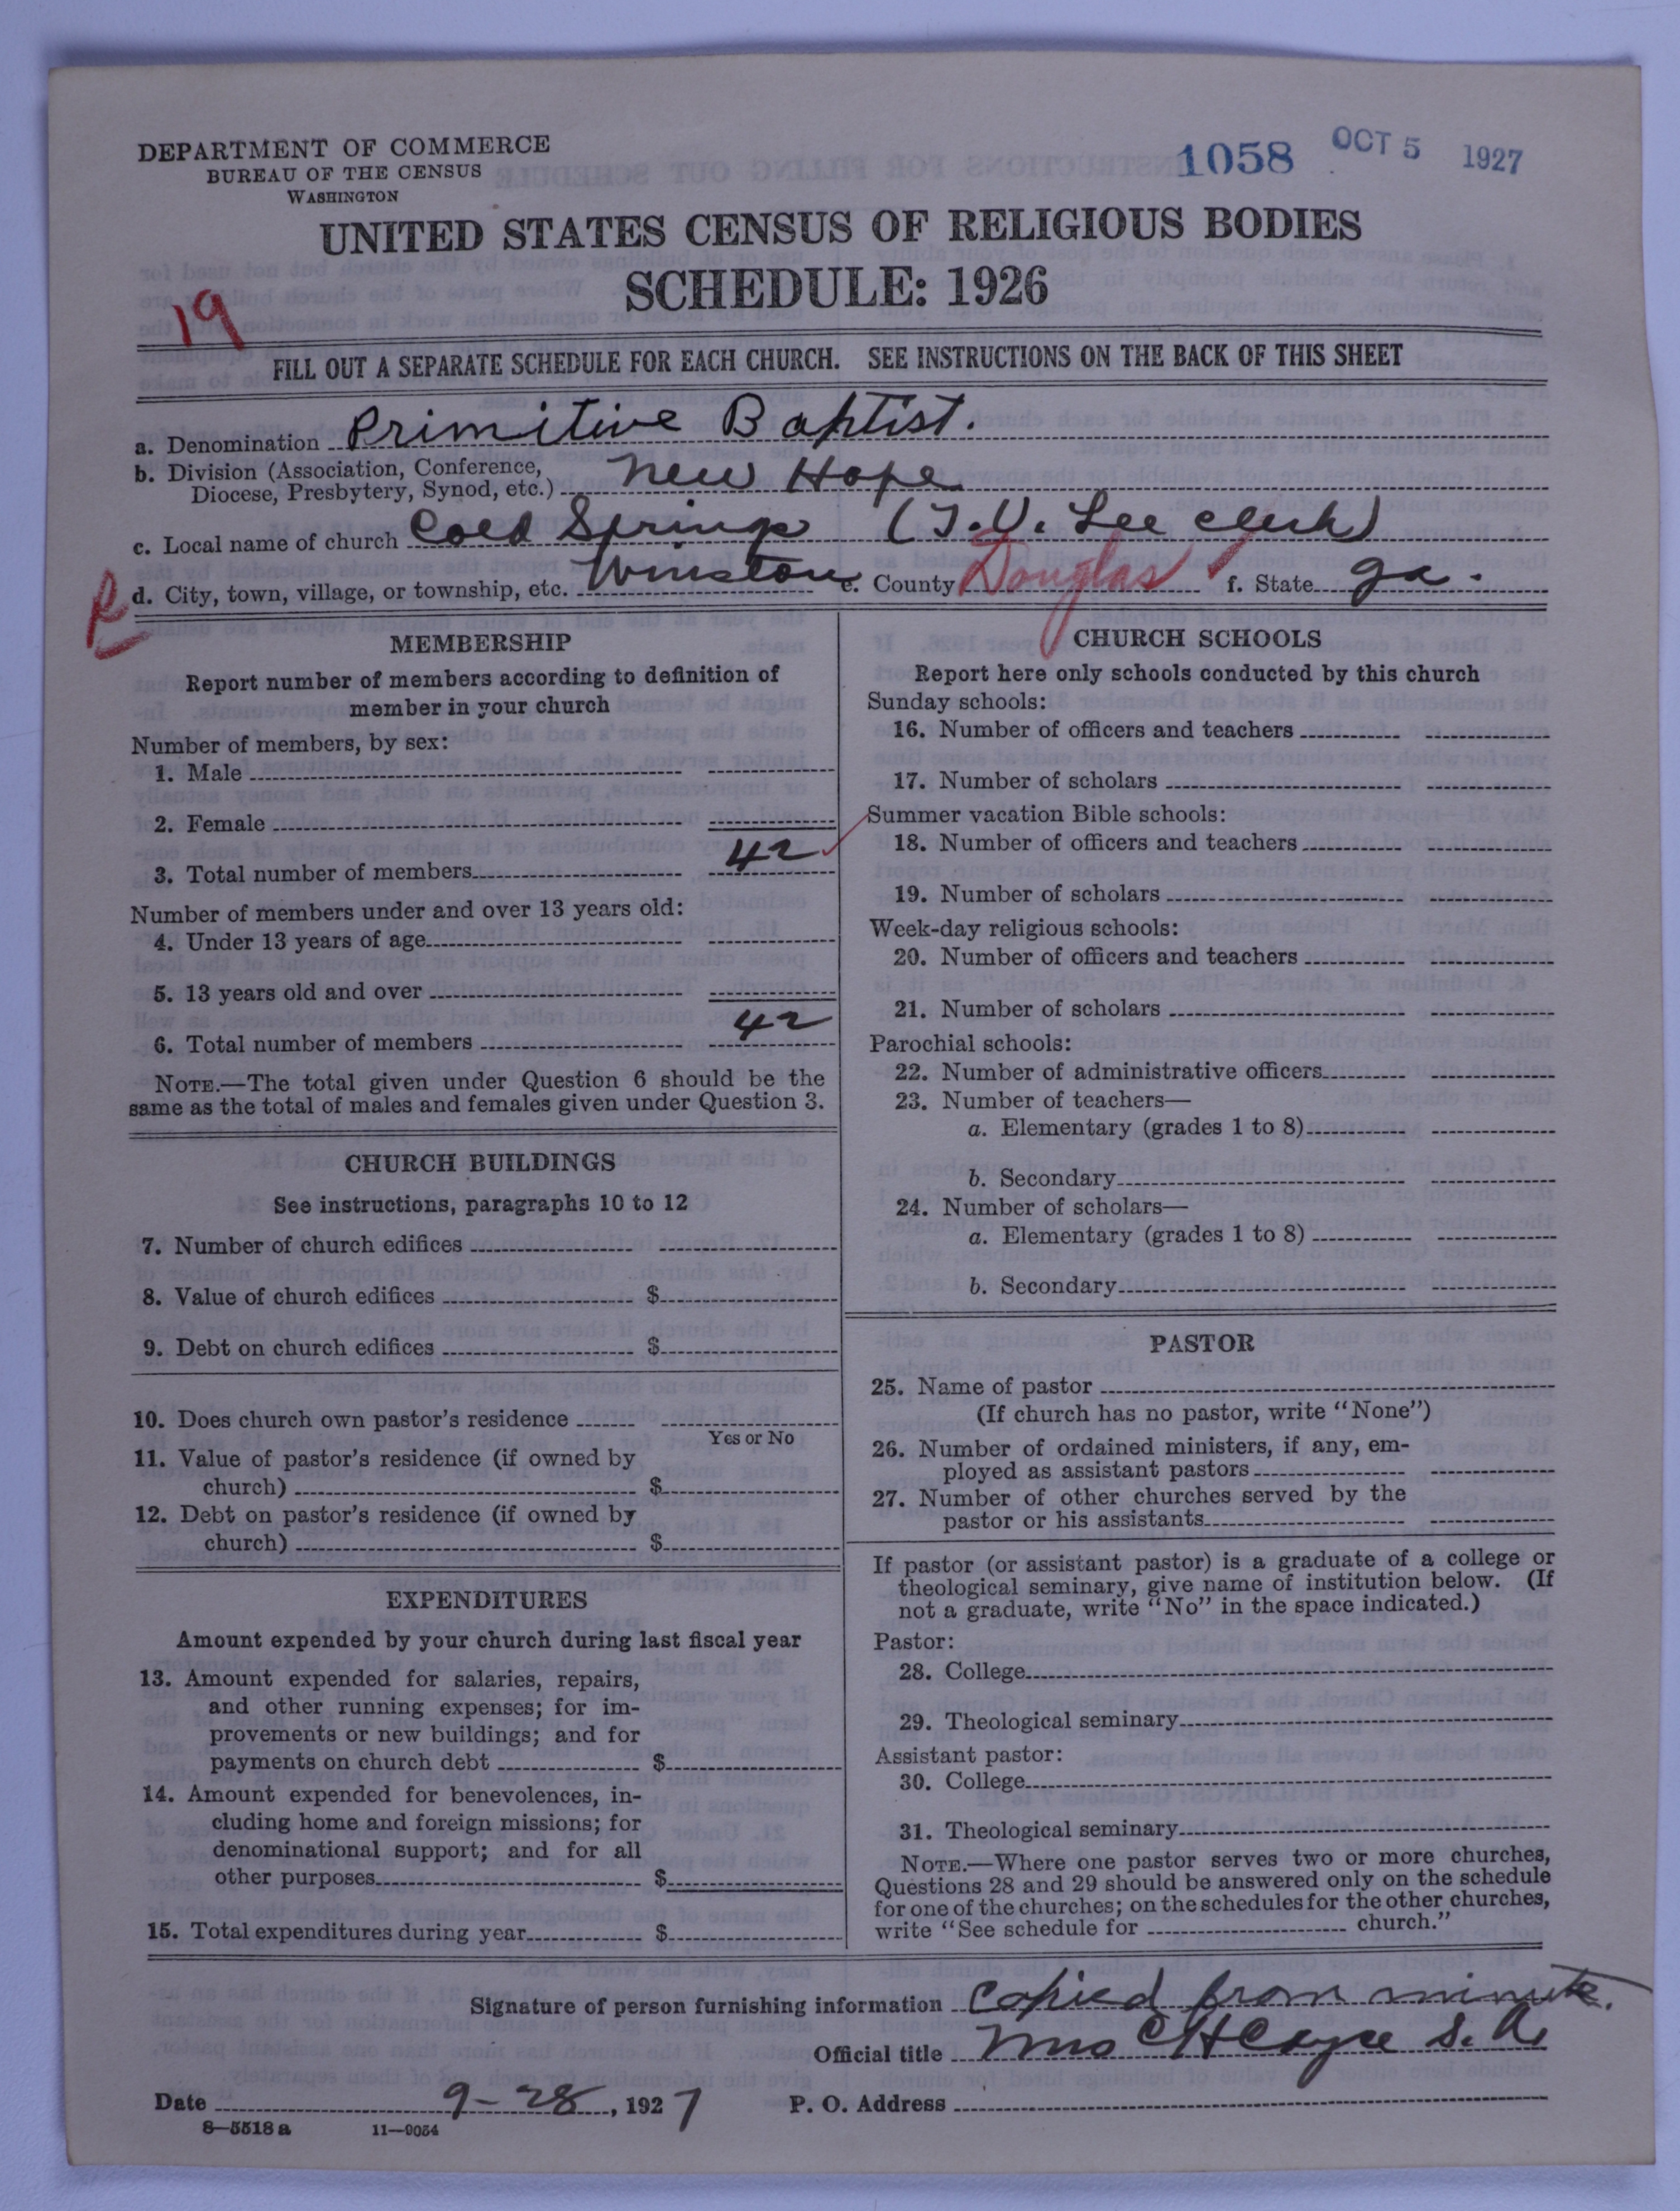 DEPARTMENT OF COMMERCE
BUREAU OF THE CENSUS
WASHINGTON
1058 OCT 5 1927
UNITED STATES CENSUS OF RELIGIOUS BODIES
SCHEDULE: 1926
19
FILL OUT A SEPARATE SCHEDULE FOR EACH CHURCH. SEE INSTRUCTIONS ON THE BACK OF THIS SHEET
a. Denomination Primitive Baptist.
b. Division (Association, Conference,
Diocese, Presbytery, Synod, etc.) New Hope
c. Local name of church Cold Springs (T. V. Lee clerk)
R d. City, town, village, or township, etc. Winston e. County Douglas f. State Ga.
MEMBERSHIP
Report number of members according to definition of
member in your church
Number of members, by sex:
1. Male
2. Female
3. Total number of members 42
Number of members under and over 13 years old:
4. Under 13 years of age
5. 13 years old and over
6. Total number of members 42
NOTE.—The total given under Question 6 should be the
same as the total of males and females given under Question 3.
CHURCH BUILDINGS
See instructions, paragraphs 10 to 12
7. Number of church edifices
8. Value of church edifices $
9. Debt on church edifices $
10. Does church own pastor's residence
Yes or No
11. Value of pastor's residence (if owned by
church) $
12. Debt on pastor's residence (if owned by
church) $
EXPENDITURES
Amount expended by your church during last fiscal year
13. Amount expended for salaries, repairs,
and other running expenses; for im-
provements or new buildings; and for
payments on church debt $
14. Amount expended for benevolences, in-
cluding home and foreign missions; for
denominational support; and for all
other purposes $
15. Total expenditures during year $
CHURCH SCHOOLS
Report here only schools conducted by this church
Sunday schools:
16. Number of officers and teachers
17. Number of scholars
Summer vacation Bible schools:
18. Number of officers and teachers
19. Number of scholars
Week-day religious schools:
20. Number of officers and teachers
21. Number of scholars
Parochial schools:
22. Number of administrative officers
23. Number of teachers—
a. Elementary (grades 1 to 8)
b. Secondary
24. Number of scholars—
a. Elementary (grades 1 to 8)
b. Secondary
PASTOR
25. Name of pastor
(If church has no pastor, write "None")
26. Number of ordained ministers, if any, em-
ployed as assistant pastors
27. Number of other churches served by the
pastor or his assistants
If pastor (or assistant pastor) is a graduate of a college or
theological seminary, give name of institution below. (If
not a graduate, write "No" in the space indicated.)
Pastor:
28. College
29. Theological seminary
Assistant pastor:
30. College
31. Theological seminary
NOTE.—Where one pastor serves two or more churches,
Questions 28 and 29 should be answered only on the schedule
for one of the churches; on the schedules for the other churches,
write "See schedule for church."
Signature of person furnishing information Copied from minute.
Official title Mrs C H Cayce S. A.
Date 9-28, 1927 P. O. Address
8—5518 a 11—9054